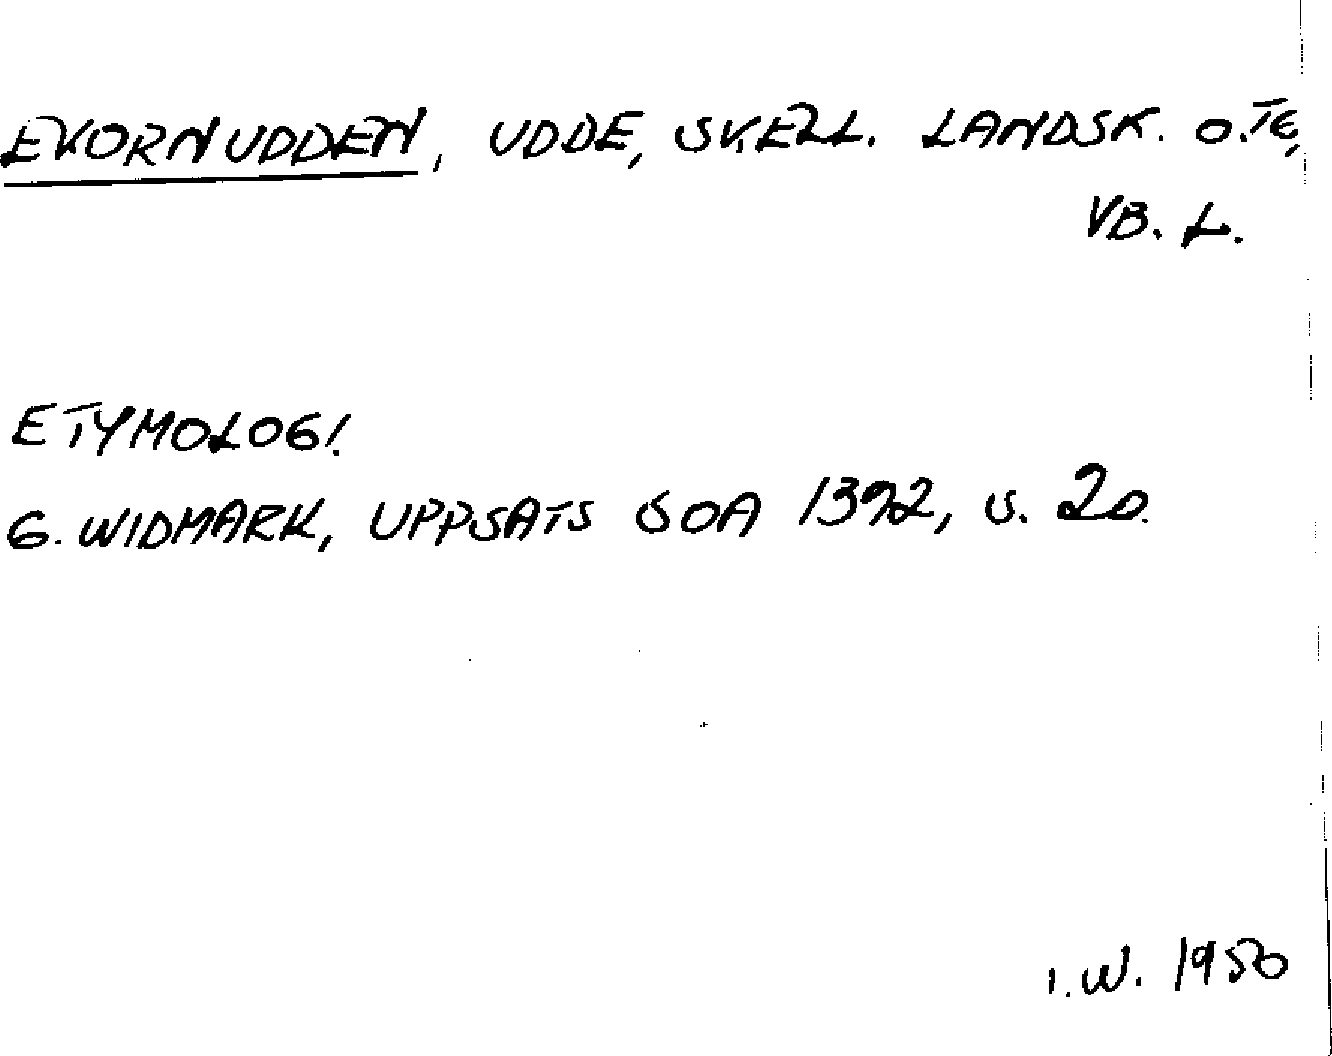 EKORNUDDEN, UDDE, SKELL. LANDSK. O. TG,
VB. L.
ETYMOLOGI.
G. WIDMARK, UPPSATS SOA 1392, S. 20.
I.W. 1950